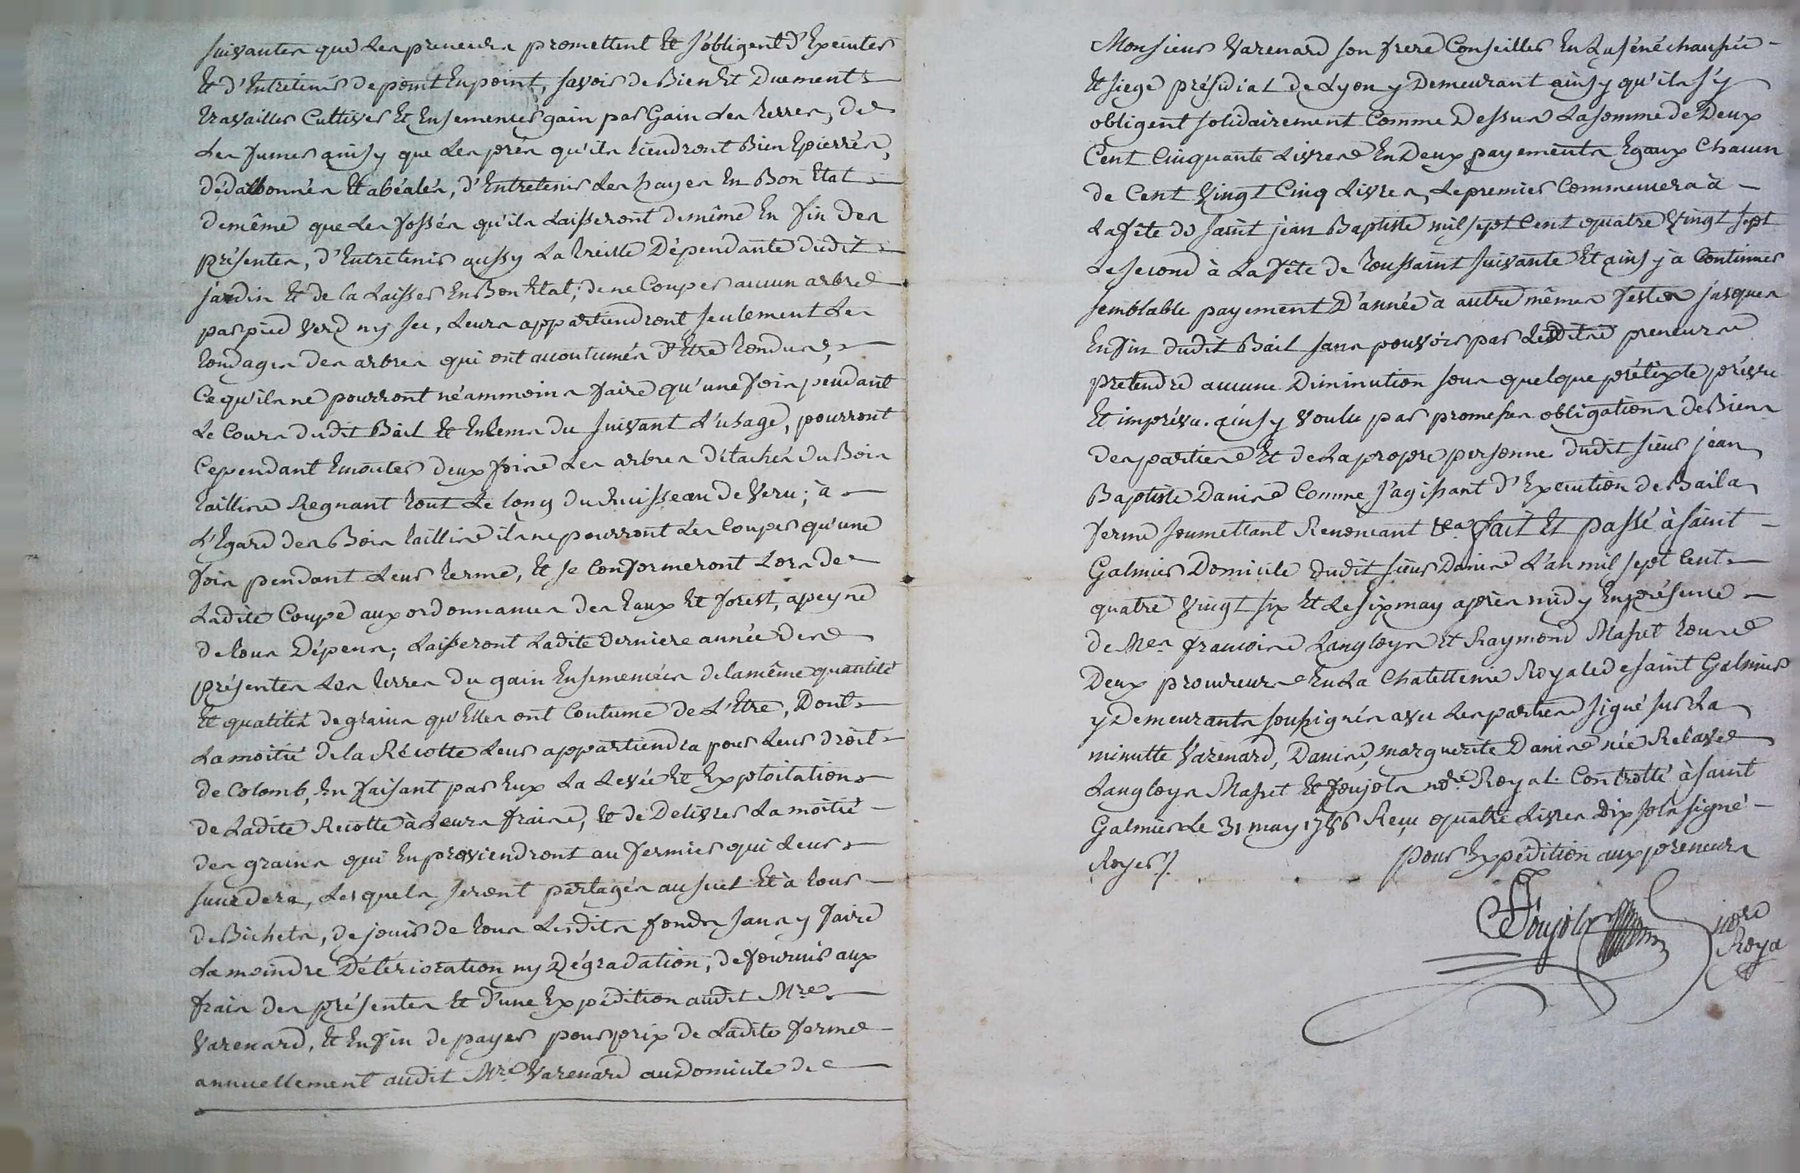 suivantes que les preneurs promettent Et s'obligent d'Executer
Et d'Entretenir de point En point, savoir de Bien Et Duement
travailler Cultiver Et Ensemencer gain par Gain les terres, de
les fumer ainsy que les prés qu'ils tiendront Bien Epierrés,
dédarbonnés Et abéalés, d'Entretenir les hayes En Bon Etat
de même que les fossés qu'ils laisseront de même En fin des
présentes, d'Entretenir aussy la treille Dépendante dudit
jardin Et de la laisser En Bon Etat; de ne Couper aucun arbre
par pied verd ny sec, leurs appartiendront seulement les
tondages des arbres qui ont accoutumés d'Etre tondus,
Ce qu'ils ne pourront néammoins faire qu'une fois pendant
le Cours dudit Bail Et En tems du suivant l'usage, pourront
Cependant Emonter deux fois les arbres détachés du Bois
taillis Regnant tout le long du Ruisseau de Veru; à
l'Egard des Bois taillis ils ne pourront les Couper qu'une
fois pendant leur terme, Et se Conformeront lors de
ladite Coupe aux ordonnances des Eaux Et forest, a peyne
de tous Dépens; laisseront ladite derniere année des
présentes les terres du gain Ensemencées de la même quantité
Et qualités de grains qu'Elles ont Coutume de l'Etre, Dont
la moitié de la Récolte leur appartiendra pour leur droit
de Colomb, En faisant par Eux la levée Et Exploitation
de ladite Recolte à leurs frais, Et de Delivrer la moitié
des grains qui En proviendront au fermier qui leur
succedera, lesquels seront partagés au suel Et à tour
de Bichets, de jouir de tous lesdits fonds sans y faire
la moindre Détérioration ny Dégradation, de fournir aux
frais des présentes Et d'une Expédition audit Mre
Varenard, Et Enfin de payer pour prix de ladite ferme
annuellement audit Mre Varenard au Domicile de
Monsieur Varenard son frere Conseiller En la sénéchaussée
Et siege présidial de Lyon y Demeurant ainsy qu'ils s'y
obligent solidairement Comme Dessus la somme de Deux
Cent Cinquante Livres En Deux payements Egaux Chacun
de Cent Vingt Cinq Livres, le premier Commencera à
la fête de saint jean Baptiste mil sept Cent quatre Vingt sept
le second à la fête de toussaint suivante Et ainsy à Continuer
semblable payement D'année à autre mêmes festes jusques
En fin dudit Bail sans pouvoir par lesdits preneurs
pretendre aucune Diminution sous quelque prétexte prévu
Et imprévu. ainsy voulu par promesses obligations de Biens
des parties Et de la propre personne dudit sieur jean
Baptiste Danis Comme s'agissant d'Execution de Bail a
ferme soumettant Renoncant &ca fait Et passé à saint
Galmier Domicile dudit sieur Danis l'an mil sept Cent
quatre Vingt six Et le six may après midy En présence
de Mes francois Langloys Et Raymond Masset tous
Deux procureurs En la Chatellenie Royale de saint Galmier
y Demeurants soussignés avec les parties signé sur la
minutte Varenard, Danis, marguerite Danis née Relave
Langloys Masset Et Foujols nore Royal. Controllé à saint
Galmier le 31 may 1786 Reçu quatre livres Dix sols signé
Royer./.
pour Expédition aux preneurs
Foujols
nore
Roya